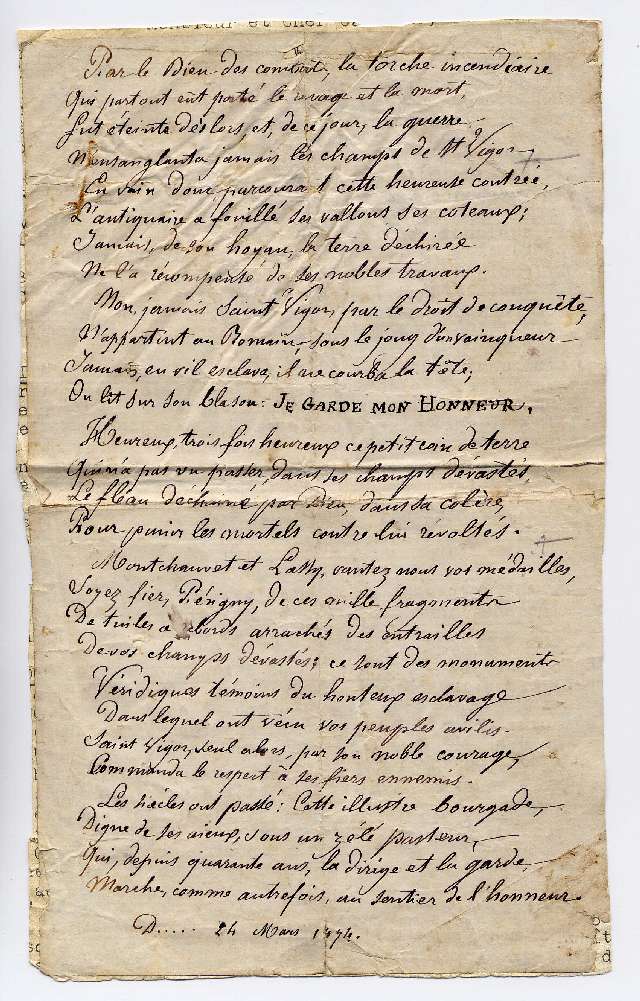 Par le Dieu des combats, la torche incendiaire
Qui partout eût porté le ravage et la mort
Fut éteinte dès lors, et, de ce jour, la guerre
N'ensanglanta jamais les champs de St Vigor
En vain donc parcourant cette heureuse contrée,
L'antiquaire a fouillé ses vallons ses coteaux;
Jamais, de son hoyau, la terre déchirée
Ne l'a récompensé de ses nobles travaux.
Non, jamais Saint Vigor, par le droit de conquête,
N'appartint au Romain, sous le joug d'un vainqueur
Jamais, en vil esclave, il ne courba la tête;
On lit sur son blason: JE GARDE MON HONNEUR.
Heureux, trois fois heureux ce petit coin de terre
Qui n'a pas vu passer, dans ses champs dévastés,
Le fléau dechainé par Dieu, dans sa colère,
Pour punir les mortels contre lui révoltés.
Montchauvet et Lassy, vantez nous vos médailles,
Soyez fier, Périgny, de ces mille fragments
De tuiles à rebords arrachés des entrailles
De vos champs dévastés; ce sont des monuments
Véridiques témoins du honteux esclavage
Dans lequel ont vécu vos peuples avilis.
Saint Vigor, seul alors, par son noble courage,
Commanda le respect à ses fiers ennemis.
Les siècles ont passé: Cette illustre bourgade,
Digne de ses aïeux, sous un zélé pasteur,
Qui, depuis quarante ans, la dirige et la garde,
Marche, comme autrefois, au sentier de l'honneur.
D..... 24 Mars 1874.